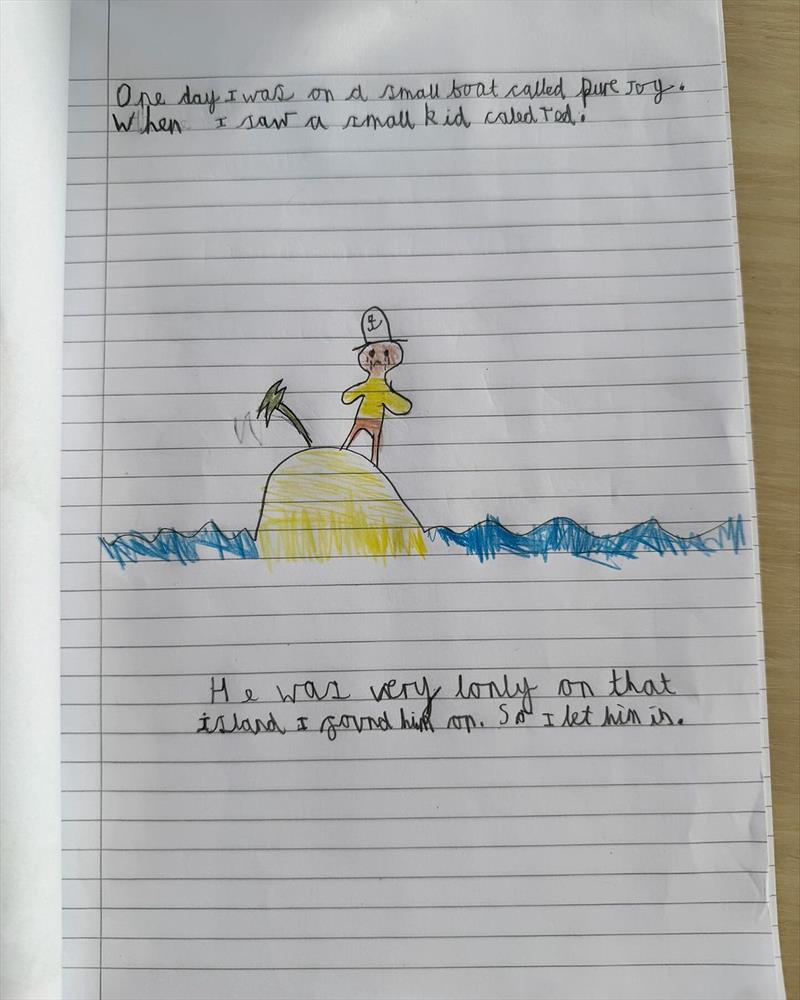 One day I was on a small boat called pure Joy.
When I saw a small kid caled Tod.
He was very lonly on that
island I found him on. So I let him in.